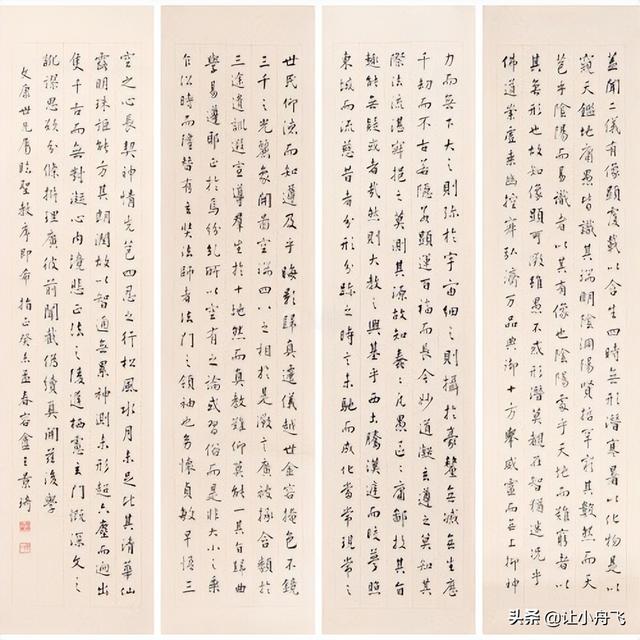 蓋聞二儀有像顯覆載以含生四時無形潛寒暑以化物是以
窺天鑑地庸愚皆識其端明陰洞陽賢哲罕窮其數然而天
苞乎陰陽而易識者以其有像也陰陽處乎天地而難窮者以
其無形也故知像顯可徵雖愚不惑形潛莫覩在智猶迷況乎
佛道崇虛乘幽控寂弘濟万品典御十方舉威靈而無上抑神
力而無下大之則弥於宇宙細之則攝於豪釐無滅無生歷
千劫而不古若隱若顯運百福而長今妙道凝玄遵之莫知其
際法流湛寂挹之莫測其源故知蠢蠢凡愚區區庸鄙投其旨
趣能無疑或者哉然則大教之興基乎西土騰漢庭而皎夢照
東域而流慈昔者分形分跡之時言未馳而成化當常現常之
世民仰德而知遵及乎晦影歸真遷儀越世金容掩色不鏡
三千之光麗象開圖空端四八之相於是微言廣被拯含類於
三途遺訓遐宣導群生於十地然而真教難仰莫能一其旨歸曲
學易遵邪正於焉紛糺所以空有之論或習俗而是非大小之乘
乍沿時而隆替有玄奘法師者法門之領袖也幼懷貞敏早悟三
空之心長契神情先苞四忍之行松風水月未足比其清華仙
露明珠詎能方其朗潤故以智通無累神測未形超六塵而迥出
隻千古而無對凝心內境悲正法之陵遲栖慮玄門慨深文之
訛謬思欲分條析理廣彼前聞截偽續真開茲後學
文康世兄屬臨聖教序即希 指正癸未孟春容盦黃琦
头条 @让小舟飞